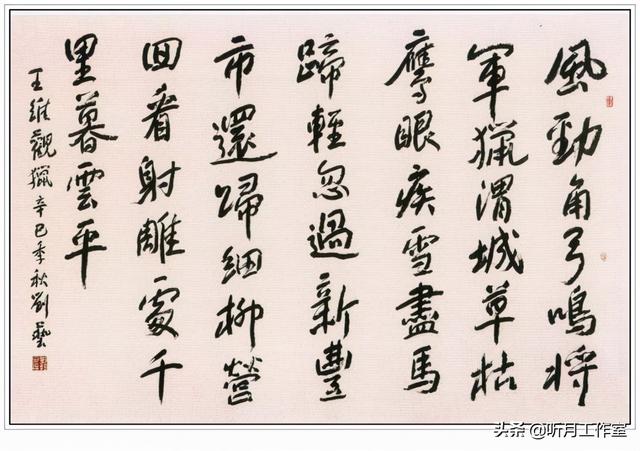 風勁角弓鳴将
軍獵渭城草枯
鷹眼疾雪盡馬
蹄輕忽過新豐
市還歸細柳營
回看射雕處千
里暮雲平
王維觀獵辛巳季秋劉藝
头条@听月工作室